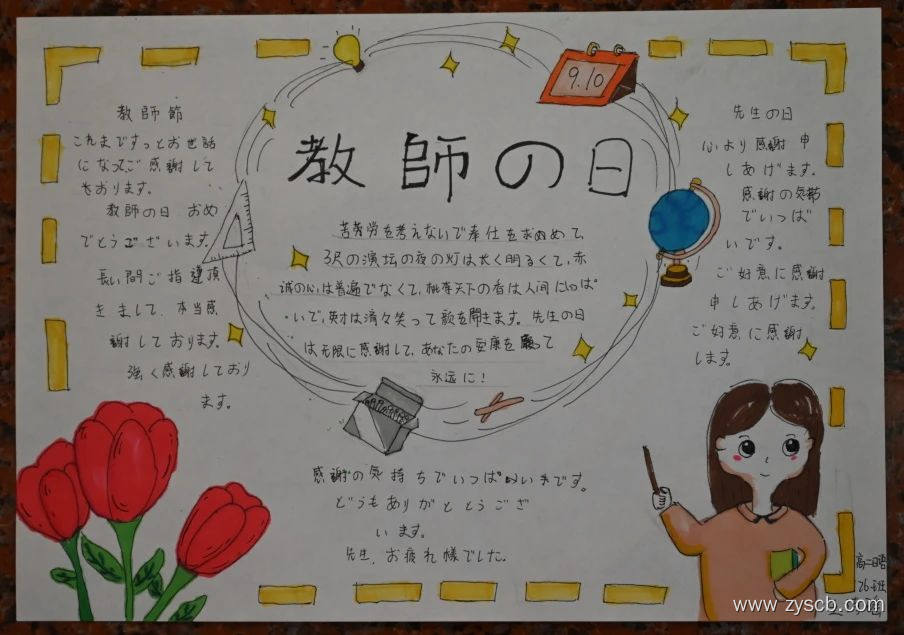 教師の日
9.10
教師節
これまでずっとお世話
になってご感謝して
おります。
教師の日 おめ
でとうございます。
長い間ご指導頂
きまして、本当感
謝しております。
強く感謝しており
ます。
苦労を考えないで奉仕を求めて、
3尺の演坛の夜の灯は长く明るくて、赤
诚の心は普遍でなくて、桃李天下の香は人间にいっぱ
いで、英才は済々笑って歌を聞きます。先生の日
は无限に感謝して、あなたの安康を願って
永远に!
先生の日
心より感謝申
しあげます。
感謝の気持
でいっぱ
いです。
ご好意に感謝
申しあげます。
ご好意に感謝
します。
感謝の気持ちでいっぱいです。
どうもありがととうござ
います。
先生、お疲れ様でした。
高二日语
26班
www.zyscb.com